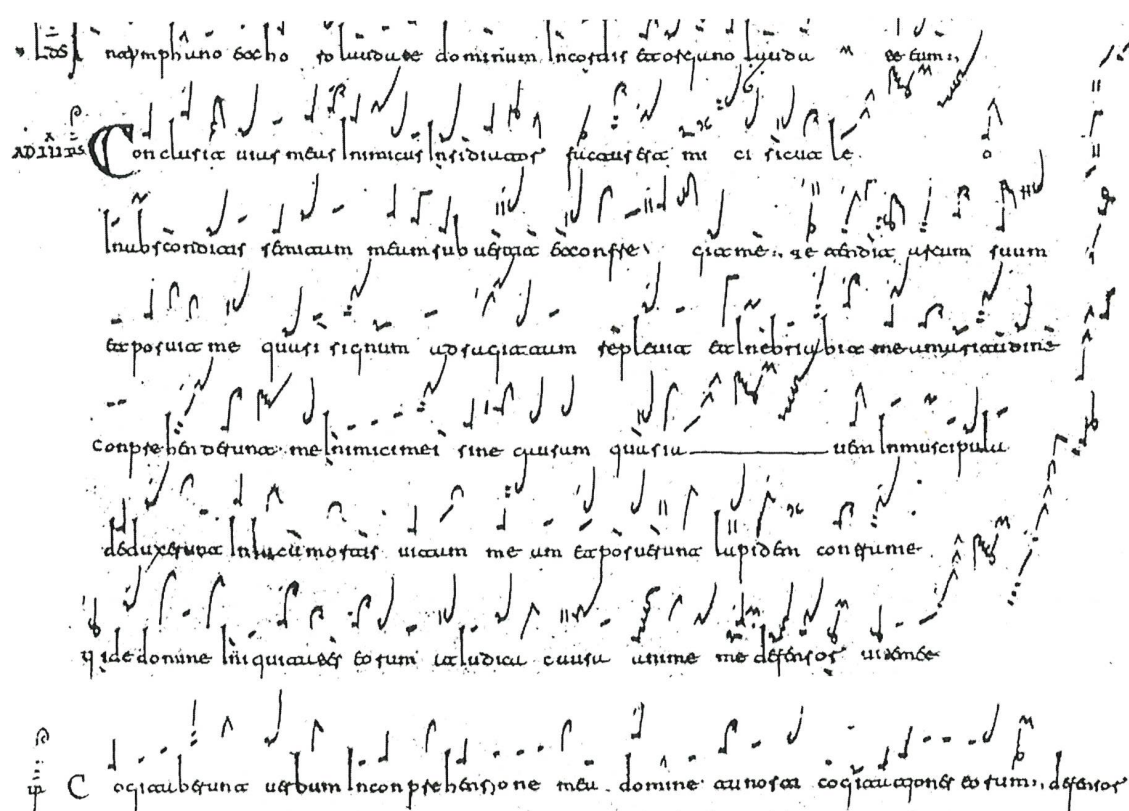 ymphano et choro laudate dominum In cordis et organo lauda te eum
Conclusit uias meas Inimicus Insidiator factus est mi ci sicut le o
In absconditis semitam meam subuertit et confre git me. te tendit arcum suum
et posuit me quasi signum ad sagittam repleuit et Inebriabit me amaritudine
conprehenderunt me Inimici mei sine causam quasi a uem In muscipula
deduxerunt In lacum mortis uitam meam et posuerunt lapidem contra me
uide domine Iniquitates eorum et Iudica causa anime me defensor uite mee
Cogitaberunt uerbum Inconprehensione mea domine tu nosti cogitationes eorum defensor